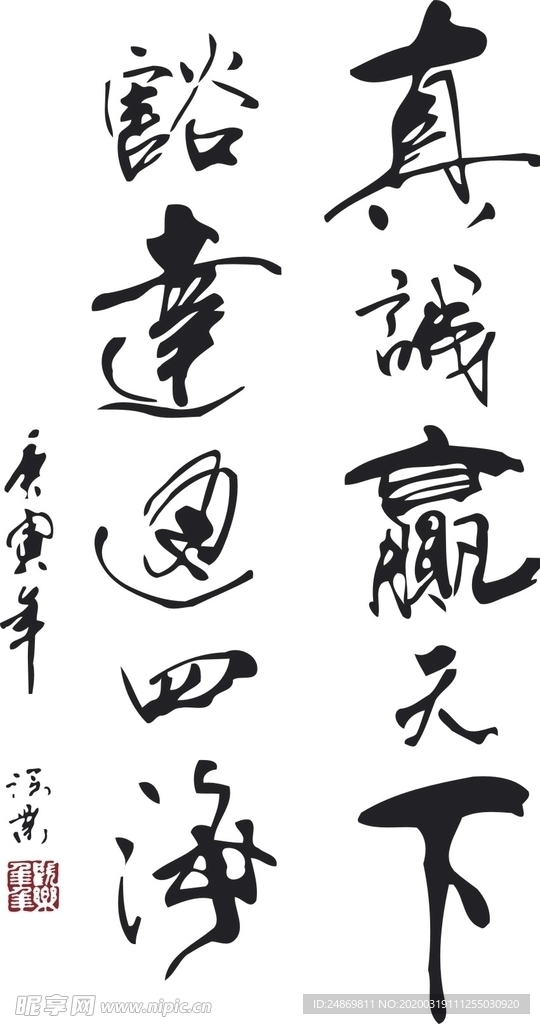 真誠贏天下
豁達通四海
庚寅年
昵享网 www.nipic.cn
ID:24869811 NO:20200319111255030920